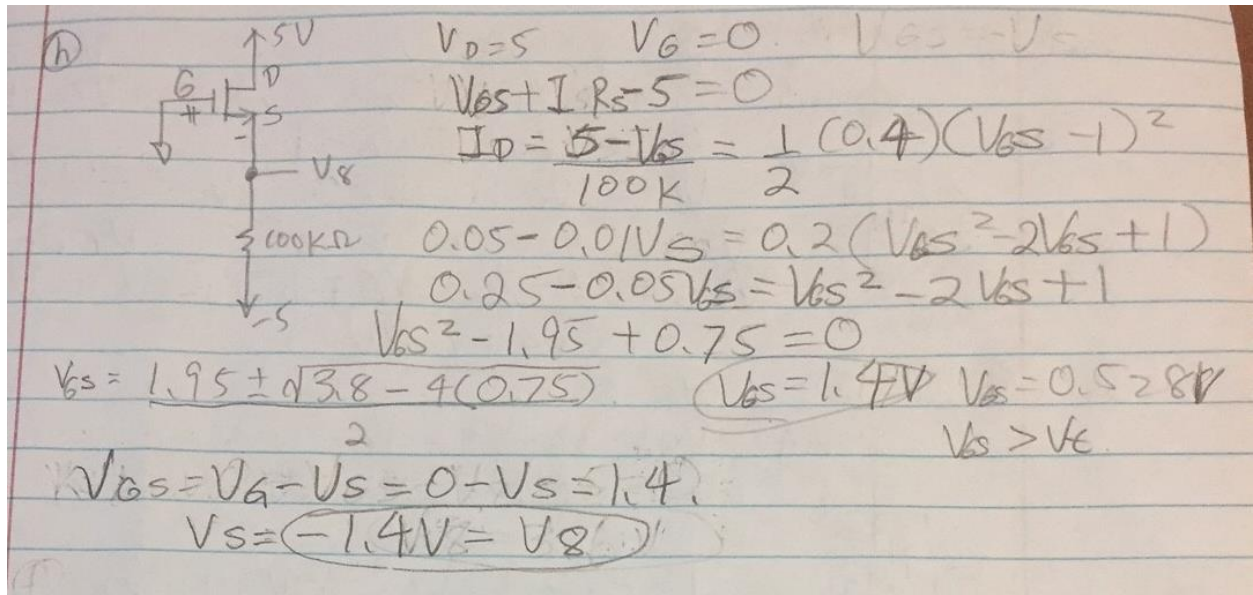 (h)
5V
V_D=5 V_G=0
G D
+ S
-
V_GS+I R_S-5=0
I_D = 5-V_GS / 100K = 1/2 (0.4)(V_GS -1)²
V8
100KΩ
0.05-0.01V_S = 0.2(V_GS²-2V_GS+1)
0.25-0.05V_GS=V_GS²-2V_GS+1
-5
V_GS²-1.95+0.75=0
V_GS = 1.95±√3.8-4(0.75) / 2 V_GS=1.4V V_GS=0.528V
V_GS>Vt.
V_GS=V_G-V_S=0-V_S=1.4.
V_S=-1.4V=V8